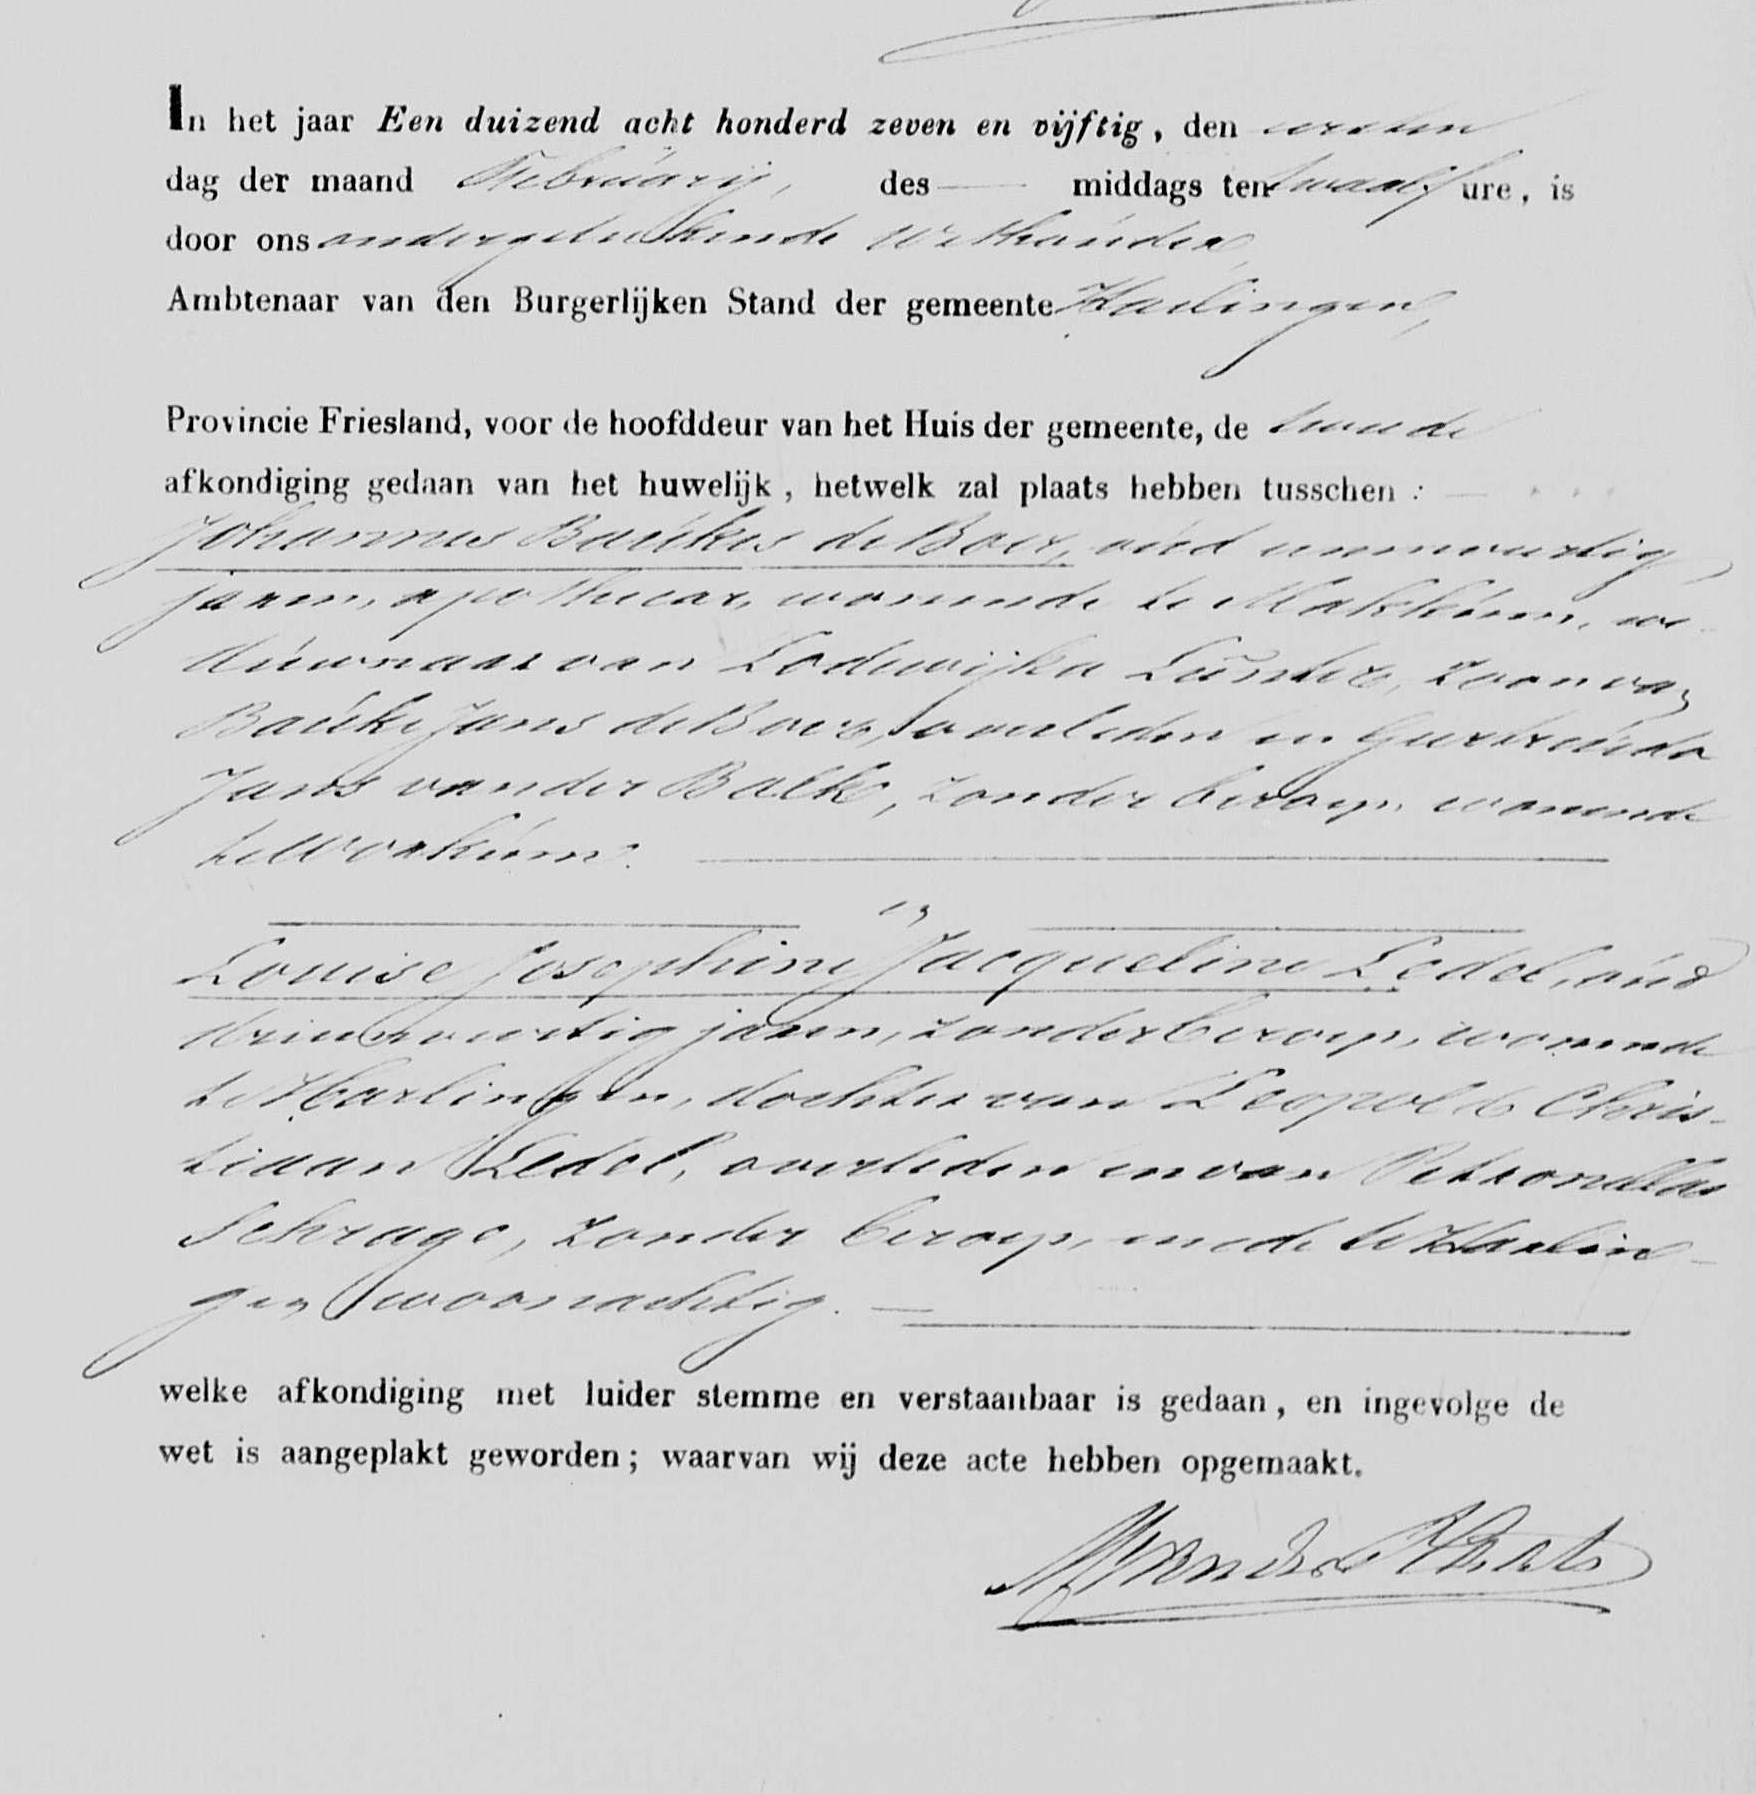 In het jaar Een duizend acht honderd zeven en vijftig, den eersten
dag der maand Februarij, des — middags ten twaalf ure, is
door ons ondergeteekende Wethouder,
Ambtenaar van den Burgerlijken Stand der gemeente Harlingen,
Provincie Friesland, voor de hoofddeur van het Huis der gemeente, de tweede
afkondiging gedaan van het huwelijk, hetwelk zal plaats hebben tusschen :
Johannes Baukes de Boer, oud eenenveertig
jaren, apothecar, wonende te Makkum, we-
duwnaar van Lodewijka Lunter, zoon van
Bauke Jans de Boer, overleden en Geertruida
Jans van der Balk, zonder beroep, wonende
te Workum.
en
Louise Josephine Jacqueline Ledel, oud
drieenveertig jaren, zonder beroep, wonende
te Harlingen, dochter van Leopold Chris-
tiaan Ledel, overleden en van Petronella
Schrage, zonder beroep, mede te Harlin-
gen woonachtig.
welke afkondiging met luider stemme en verstaanbaar is gedaan, en ingevolge de
wet is aangeplakt geworden; waarvan wij deze acte hebben opgemaakt.